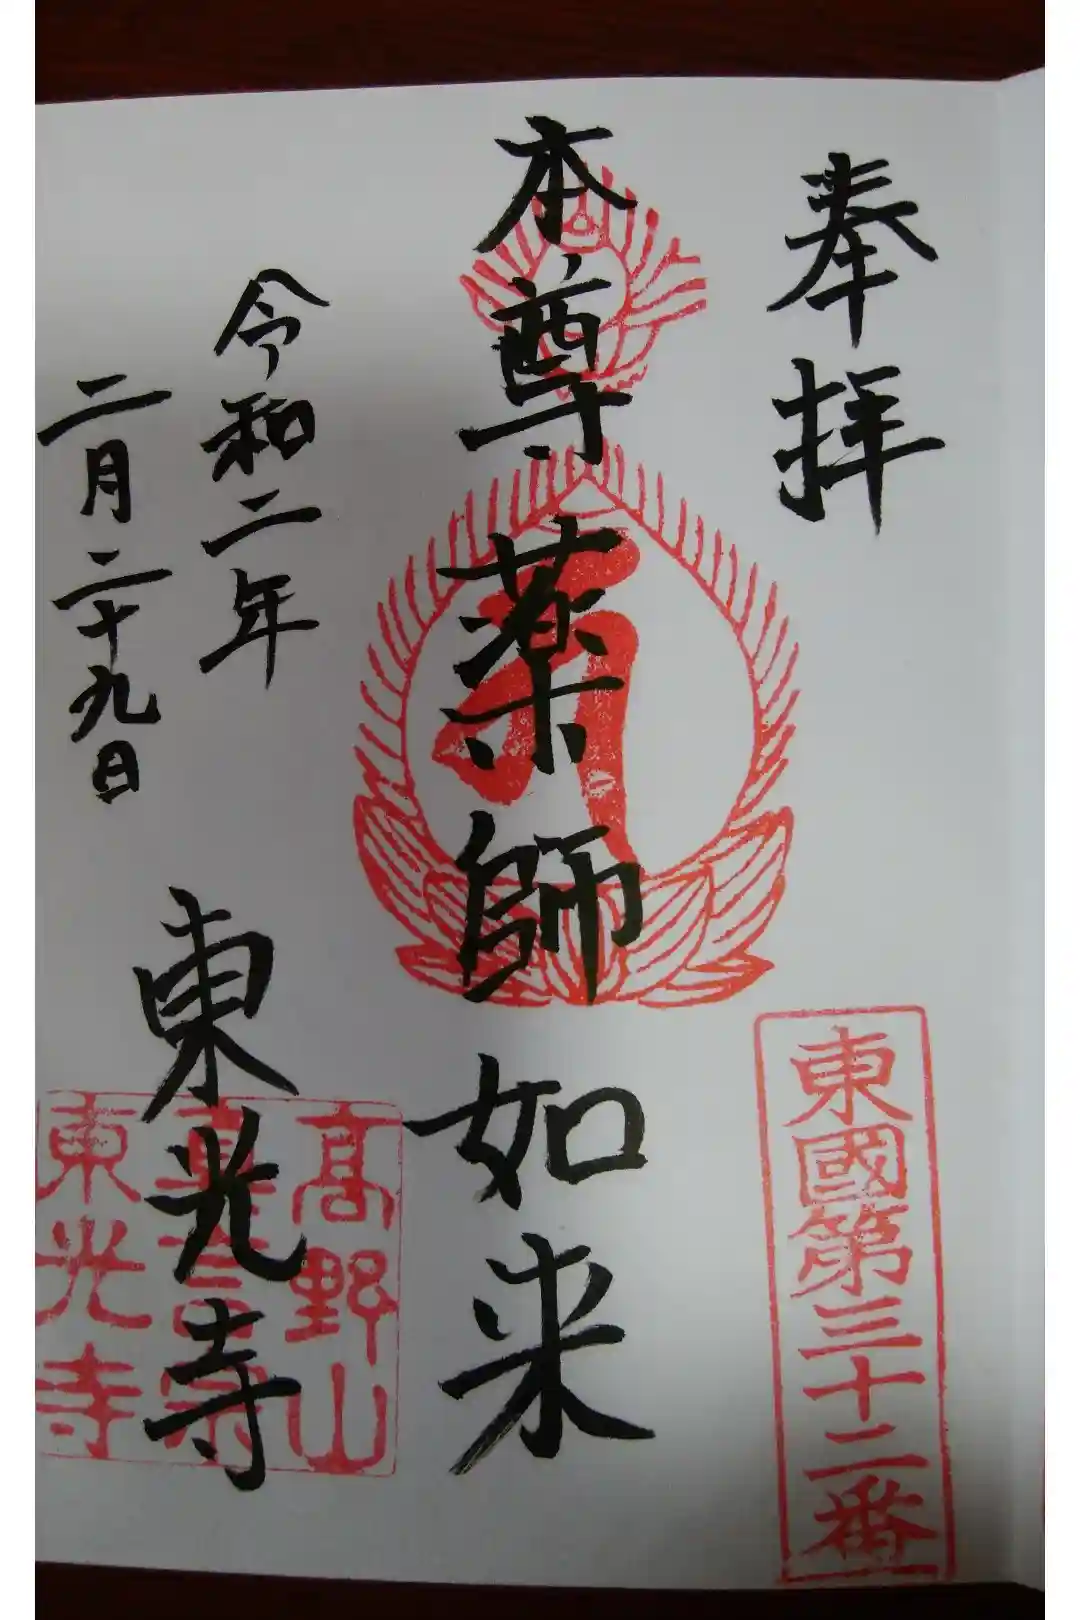 奉拝
東國第三十二番
本尊薬師如来
令和二年
二月二十九日
東光寺
高野山
真言宗
東光寺